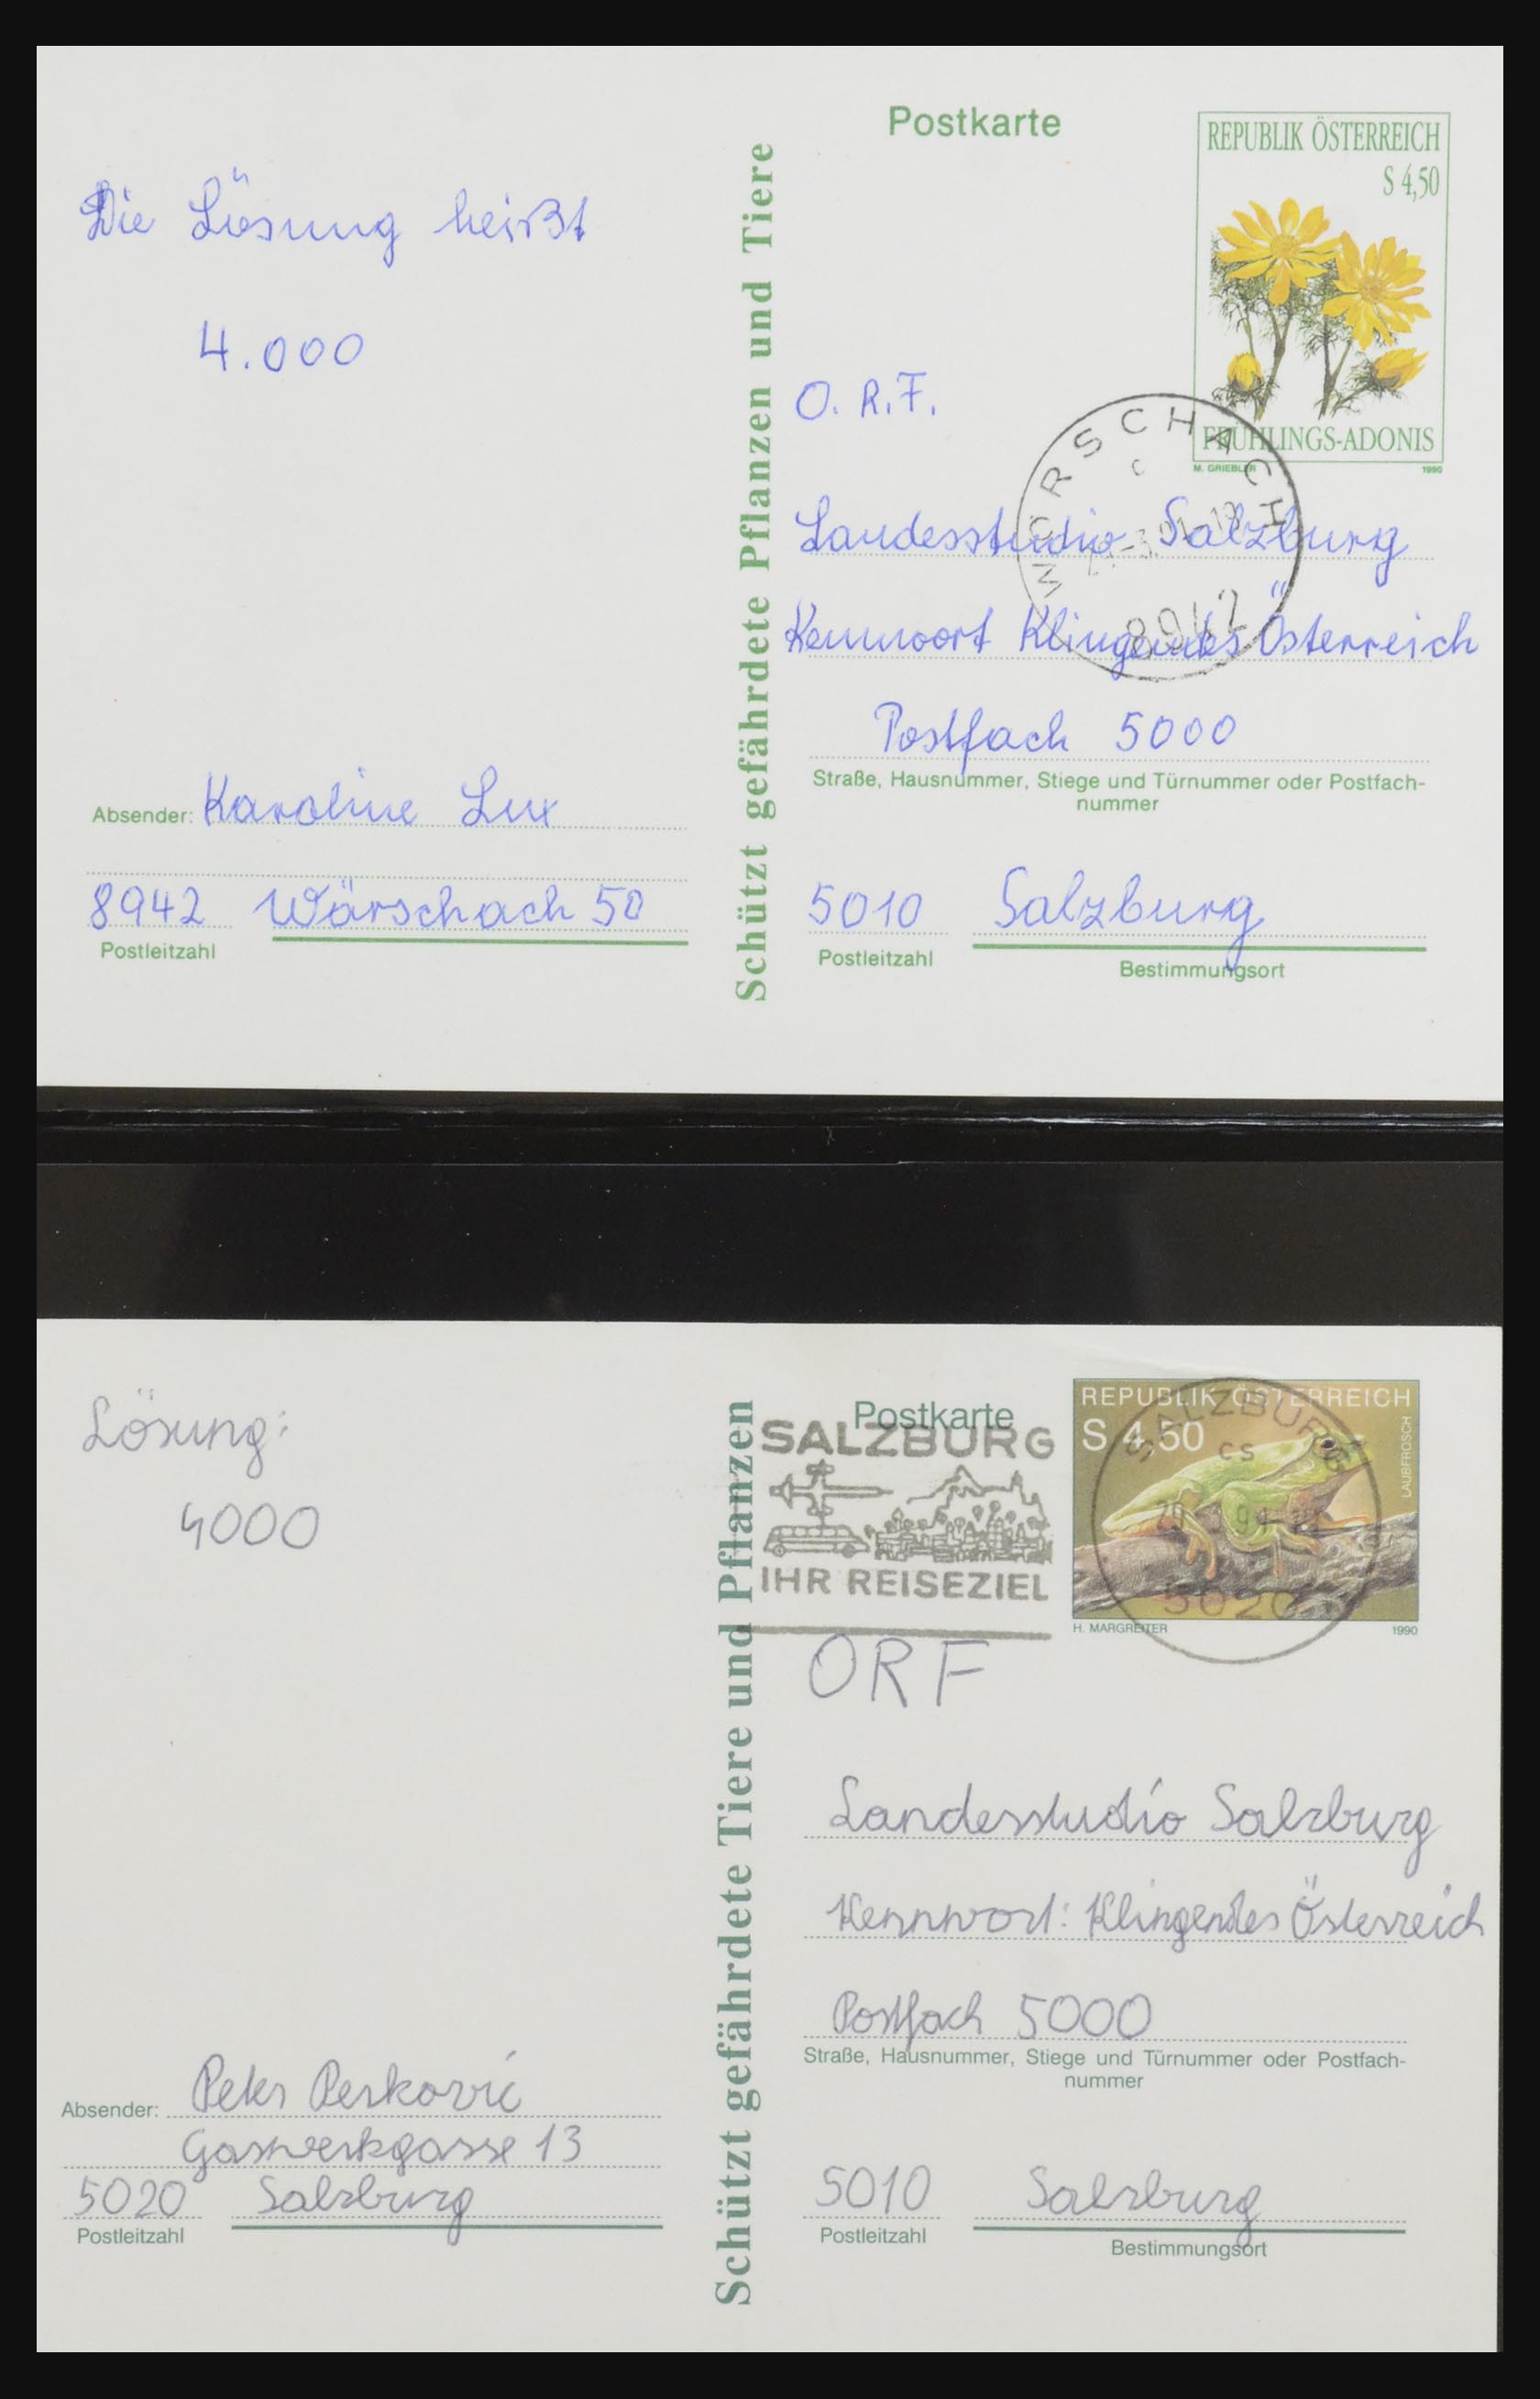 Die Lösung heißt
4.000
Absender: Karoline Lux
8942 Wörschach 50
Postleitzahl
Schützt gefährdete Pflanzen und Tiere
Postkarte
REPUBLIK ÖSTERREICH
S 4,50
FRÜHLINGS-ADONIS
M. GRIEBLER 1990
WÖRSCHACH
C
8942
O.R.F.
Landesstudio Salzburg
Kennwort Klingendes Österreich
Postfach 5000
Straße, Hausnummer, Stiege und Türnummer oder Postfach-
nummer
5010 Salzburg
Postleitzahl
Bestimmungsort
Lösung:
4000
Absender: Peter Perković
Gaswerkgasse 13
5020 Salzburg
Postleitzahl
Schützt gefährdete Tiere und Pflanzen
Postkarte
SALZBURG
IHR REISEZIEL
REPUBLIK ÖSTERREICH
S 4,50
LAUBFROSCH
H. MARGREITER 1990
SALZBURG
CS
5020
ORF
Landesstudio Salzburg
Kennwort: Klingendes Österreich
Postfach 5000
Straße, Hausnummer, Stiege und Türnummer oder Postfach-
nummer
5010 Salzburg
Postleitzahl
Bestimmungsort